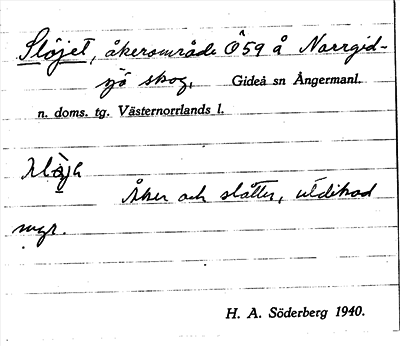 Slöjet, åkerområde Ô59 å Norrgid-
sjö skog, Gideå sn Ångermanl.
n. doms. tg. Västernorrlands l.
Åker och slåtter, utdikad
myr.
H. A. Söderberg 1940.